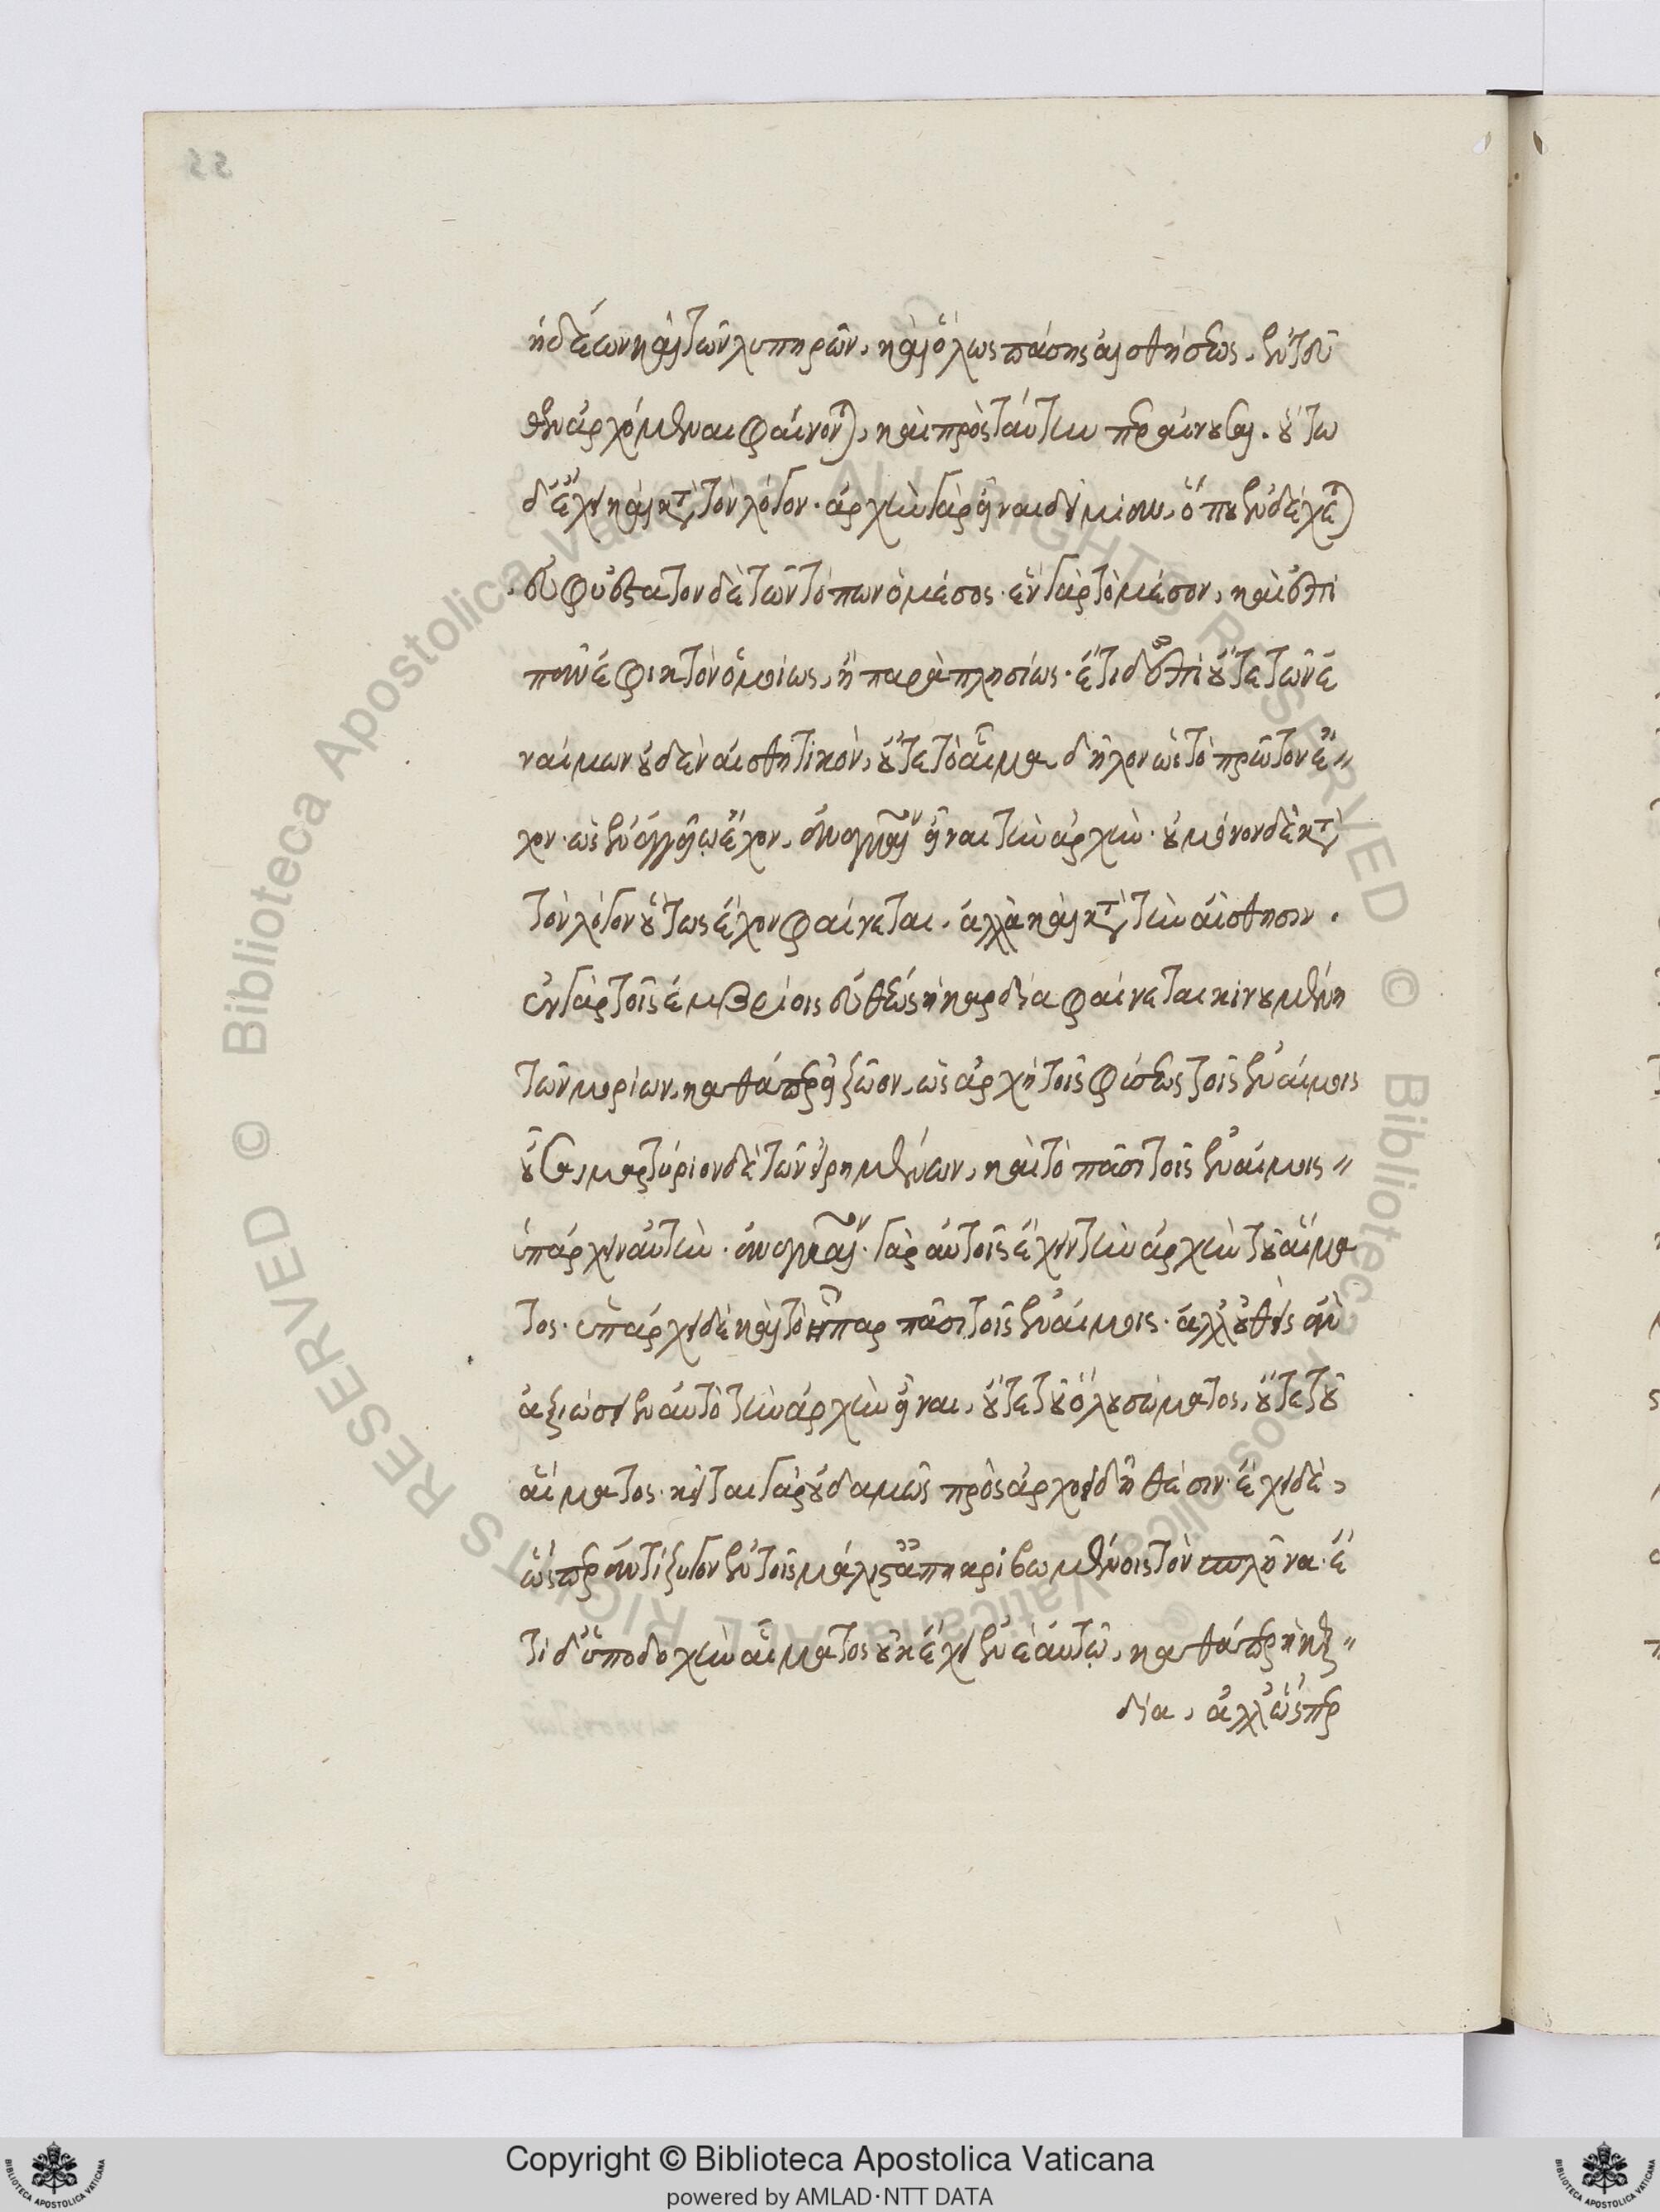 ἡδέων καὶ τῶν λυπηρῶν, καὶ ὅλως πάσης αἰσθήσεως, ἐντεῦ
θεν ἀρχόμεναι φαίνονται, καὶ πρὸς ταύτην περαίνουσαι. οὕτω
δ' ἔχει καὶ κατὰ τὸν λόγον· ἀρχὴν γὰρ εἶναι δεῖ μίαν, ὅπου ἐνδέχεται
εὐφυέστατον δὲ τῶν τόπων ὁ μέσος· ἓν γὰρ τὸ μέσον, καὶ ἐπὶ
πᾶν ἐφικτὸν ὁμοίως, ἢ παραπλησίως· ἔτι δ' ἐπεὶ οὔτε τῶν ἐ
ναίμων οὐδὲν αἰσθητικὸν, οὔτε τὸ αἷμα, δῆλον ὡς τὸ πρῶτον ἔ〃
χον· ὡς ἐν ἀγγείῳ ἔχον, ἀναγκαῖον εἶναι τὴν ἀρχὴν· οὐ μόνον δὲ κατὰ
τὸν λόγον οὕτως ἔχον φαίνεται, ἀλλὰ καὶ κατὰ τὴν αἴσθησιν.
ἐν γὰρ τοῖς ἐμβρύοις εὐθέως ἡ καρδία φαίνεται κινουμένη
τῶν μορίων, καθάπερ εἰ ζῶον, ὡς ἀρχὴ τοῖς φύσεως τοῖς ἐναίμοις
οὖσα, μαρτύριον δὲ τῶν εἰρημένων, καὶ τὸ πᾶσι τοῖς ἐναίμοις〃
ὑπάρχειν αὐτὴν· ἀναγκαῖον· γὰρ αὐτοῖς ἔχειν τὴν ἀρχὴν τοῦ αἵμα
τος· ὑπάρχει δὲ καὶ τὸ ἧπαρ πᾶσι τοῖς ἐναίμοις· ἀλλ' οὐθεὶς ἂν
ἀξιώσειεν αὐτὸ τὴν ἀρχὴν εἶναι, οὔτε τοῦ ὅλου σώματος, οὔτε τοῦ
αἵματος· κεῖται γὰρ οὐδαμῶς πρὸς ἀρχοειδῆ θέσιν· ἔχει δὲ,
ὥσπερ ἀντίζυγον ἐν τοῖς μάλιστα ἀπηκριβωμένοις τὸν σπλῆνα· ἔ
τι δ' ὑποδοχὴν αἵματος οὐκ ἔχει ἐν ἑαυτῷ, καθάπερ ἡ καρ〃
δία, ἀλλ' ὥσπερ
Copyright © Biblioteca Apostolica Vaticana
powered by AMLAD·NTT DATA